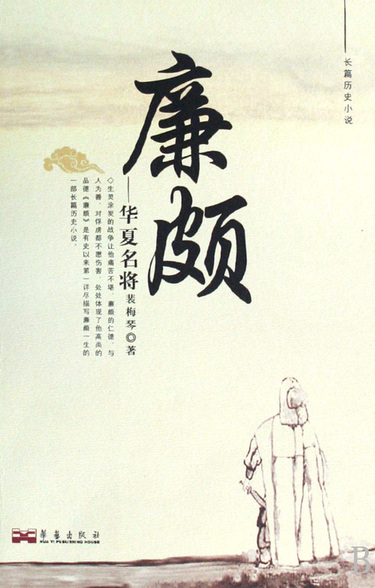 长篇历史小说
廉颇
——华夏名将
裴梅琴◎著
◇生灵涂炭的战争让他痛苦不堪，廉颇的仁德，与
人为善，对俘虏都不愿伤害，处处体现了他高尚的
品德《廉颇》是有史以来第一详尽描写廉颇一生的
一部长篇历史小说。
华艺出版社
HUA YI PUBLISHING HOUSE
B